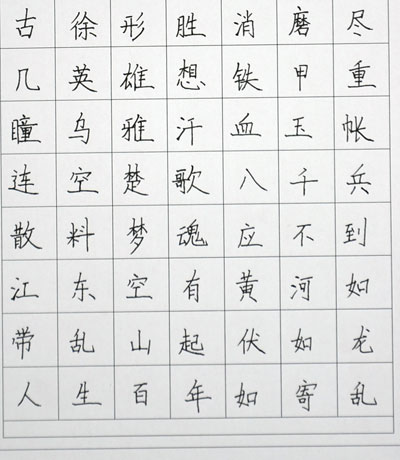 古徐形胜消磨尽
几英雄想铁甲重
瞳乌雅汗血玉帐
连空楚歌八千兵
散料梦魂应不到
江东空有黄河如
带乱山起伏如龙
人生百年如寄乱